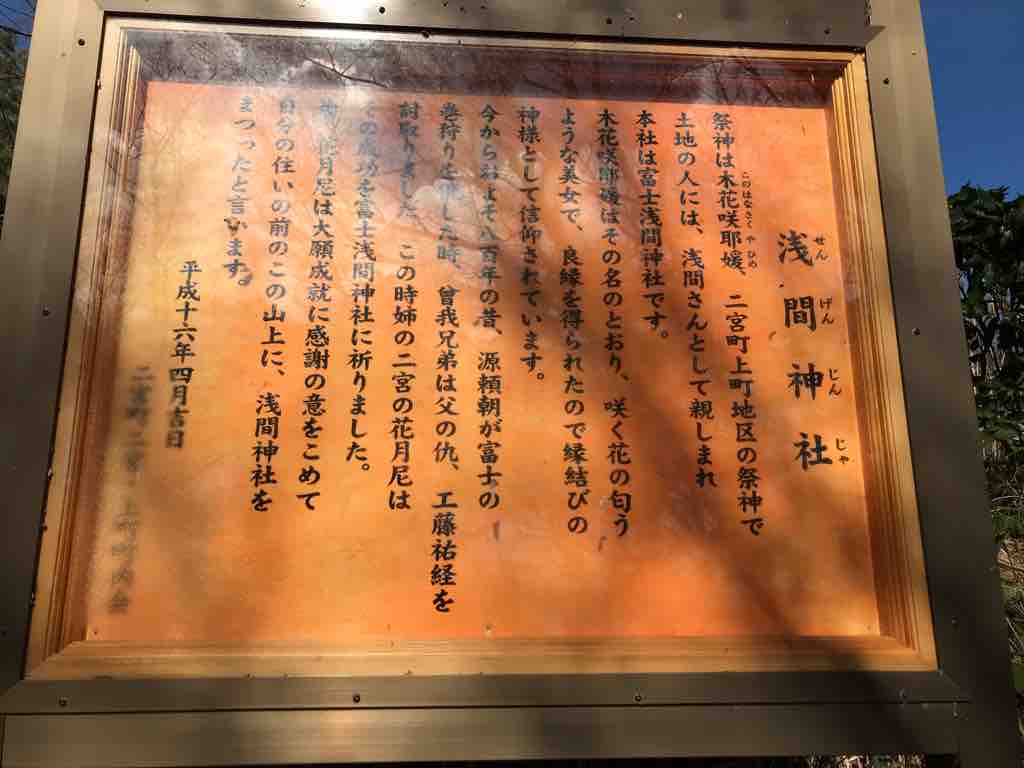 浅間神社
せんげんじんじゃ
祭神は木花咲耶媛、二宮町上町地区の祭神で
このはなさくやひめ
土地の人には、浅間さんとして親しまれ
本社は富士浅間神社です。
木花咲耶媛はその名のとおり、咲く花の匂う
ような美女で、良縁を得られたので縁結びの
神様として信仰されています。
今からおよそ八百年の昔、源頼朝が富士の
巻狩りを催した時、曽我兄弟は父の仇、工藤祐経を
討取りました。この時姉の二宮の花月尼は
その成功を富士浅間神社に祈りました。
花月尼は大願成就に感謝の意をこめて
自分の住いの前のこの山上に、浅間神社を
まつったと言います。
平成十六年四月吉日
二宮町二宮 上町町内会